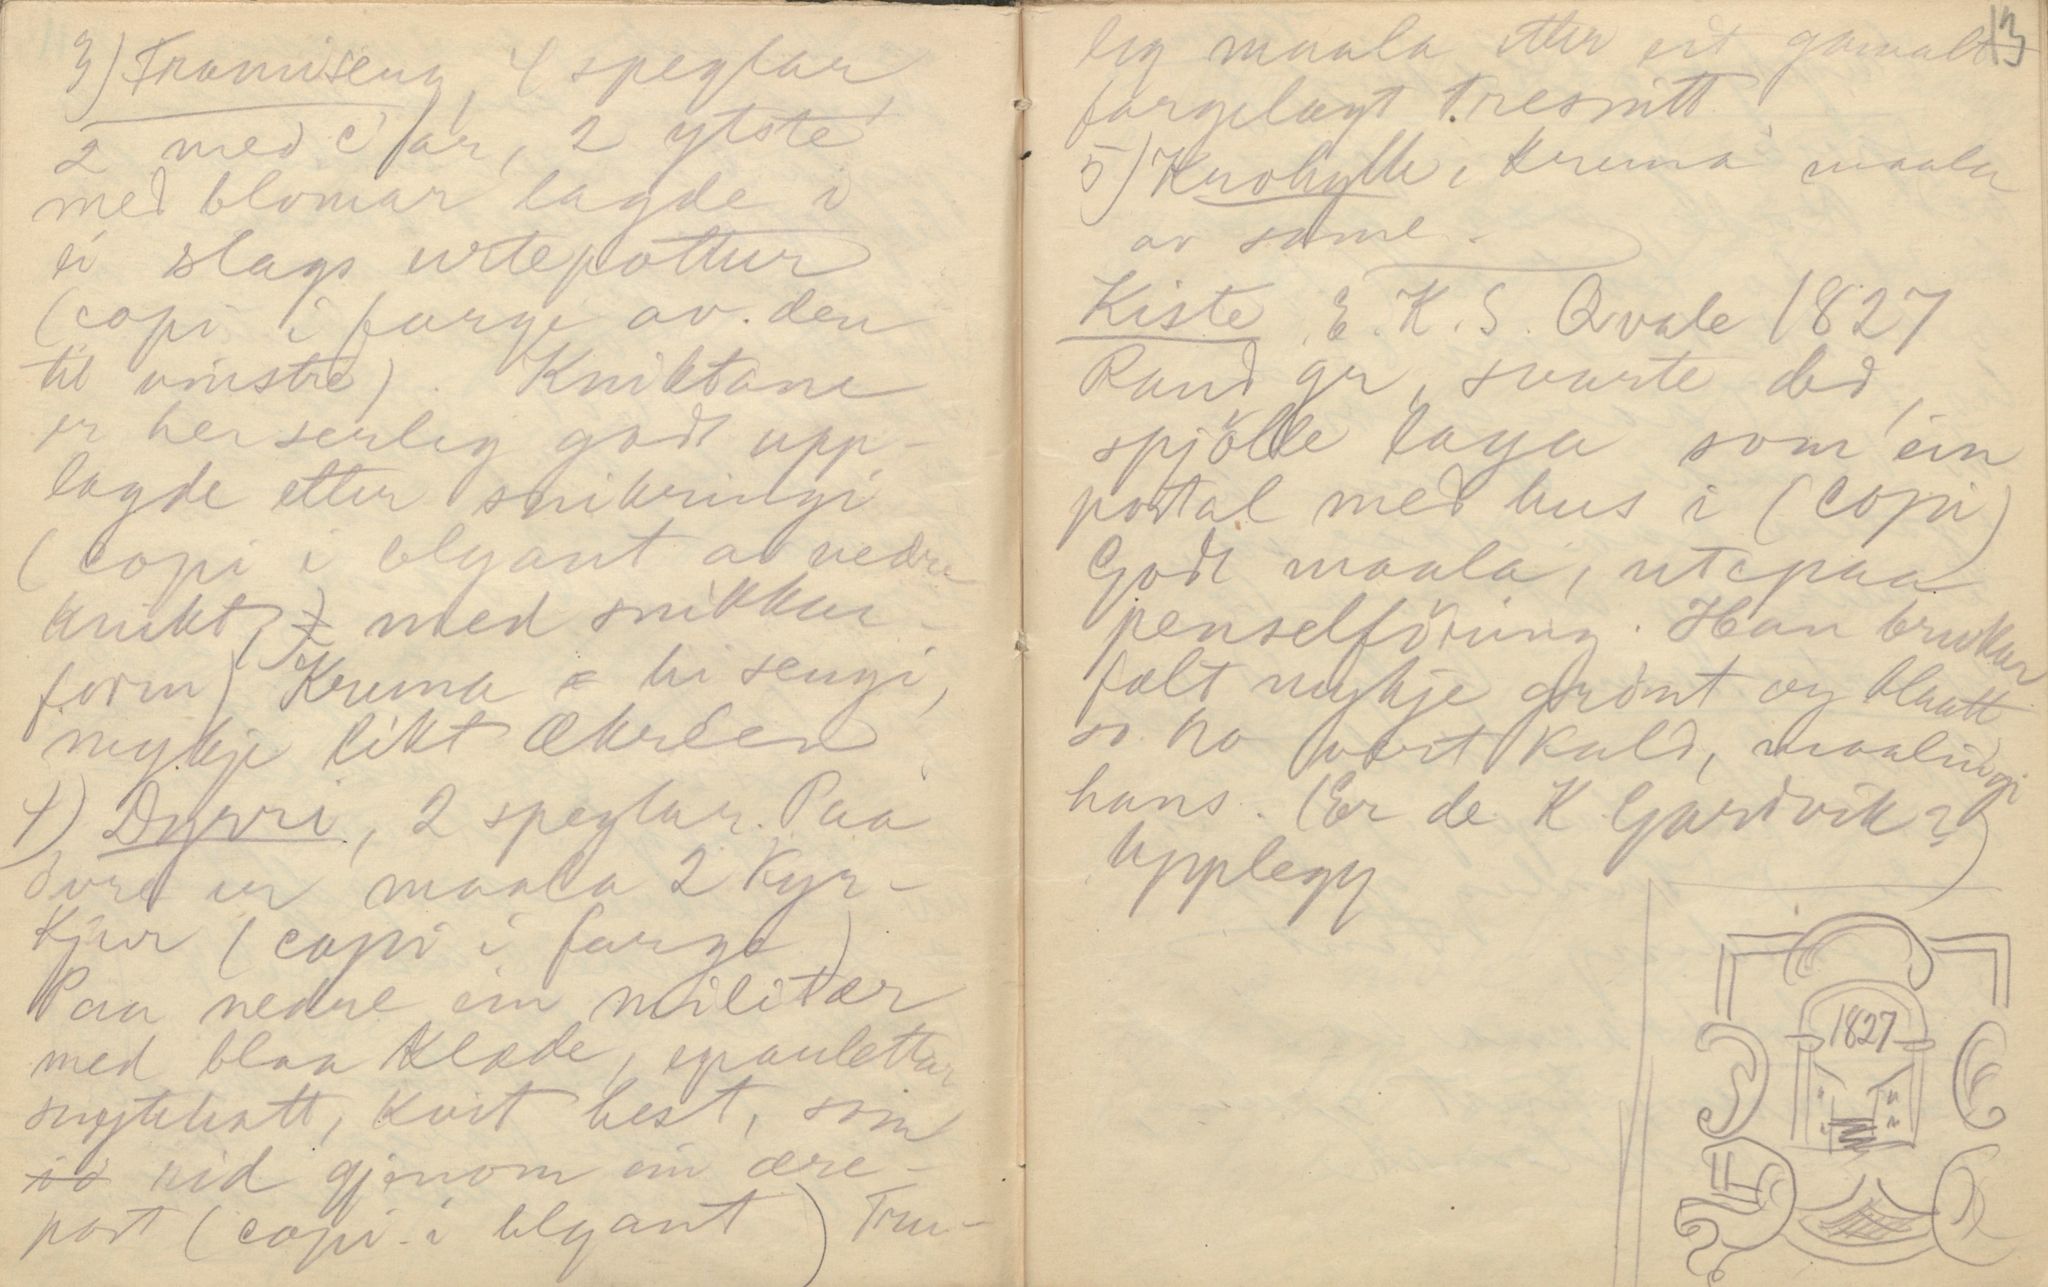 3) Framiseng, 4 speglar,
2 med C'ar, 2 ytste
med blomar lagde i
ei slags urtepottur
(copi i farge av den
til vinstre). Kniktane
er her serleg godt upp-
lagde etter snikringi
(copi i blyant av nedre
knikt, med snikkar-
form) Kruna = hi sengi,
mykje likt Økreen
4) Dyrri, 2 speglar. Paa
övre er maala 2 kyr-
kjur (copi i farge)
Paa nedre ein militær
med blaa klæde, epaulettar
snytehatt, kvit hest, som
rid gjenom ein ære-
port (copi i blyant) Tru-
13
leg maala etter eit gamalt
fargelagt tresnitt.
5) Krohylle, kruna maala
av same.
Kiste E. K. S. Qvale 1827
Rand gr, svarte led,
spjölle laga som ein
portal med hus i (copi)
Godt maala, utapaa
penselföring. Han brukar
fælt mykje grönt og blaatt
so ho vert kald, maalingi
hans. (Er de K Gardvik?)
Upplegg
1827